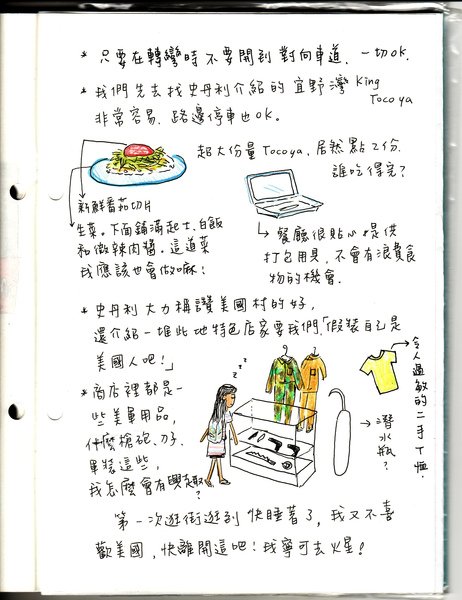 * 只要在轉彎時不要開到對向車道,一切OK.
* 我們先去找史丹利介紹的宜野灣 King Tocoya
非常容易,路邊停車也OK。
超大份量Tocoya,居然點2份.
誰吃得完?
新鮮番茄切片
生菜。下面鋪滿起士.白飯
和微辣肉醬。這道菜
我應該也會做嘛!
餐廳很貼心提供
打包用具,不會有浪費食
物的機會.
* 史丹利大力稱讚美國村的好,
還介紹一堆此地特色店家要我們「假裝自己是
美國人吧!」
令人過敏的二手T恤.
* 商店裡都是一
些美軍用品,
什麼槍砲、刀子.
軍裝這些,
我怎麼會有興趣?
z z z
潛水瓶?
第一次逛街逛到快睡著了,我又不喜
歡美國,快離開這吧!我寧可去火星!